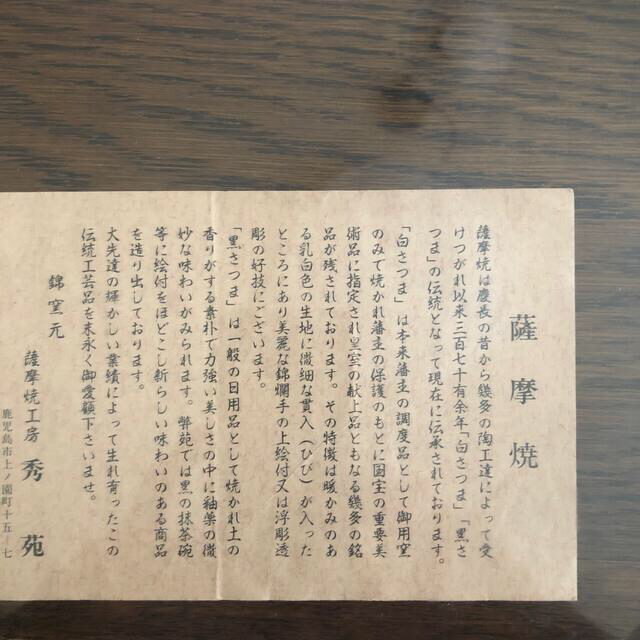 薩摩焼
薩摩焼は慶長の昔から幾多の陶工達によって受
けつがれ以来三百七十有余年「白さつま」「黒さ
つま」の伝統となって現在に伝承されております。
「白さつま」は本来藩主の調度品として御用窯
のみで焼かれ藩主の保護のもとに国宝の重要美
術品に指定され皇室の献上品ともなる幾多の銘
品が残されております。その特徴は暖かみのあ
る乳白色の生地に微細な貫入（ひび）が入った
ところにあり美麗な錦爛手の上絵付又は浮彫透
彫の好技にございます。
「黒さつま」は一般の日用品として焼かれ土の
香りがする素朴で力強い美しさの中に釉薬の微
妙な味わいがみられます。弊苑では黒の抹茶碗
等に絵付をほどこし新らしい味わいのある商品
を造り出しております。
大先達の輝かしい業績によって生れ育ったこの
伝統工芸品を末永く御愛顧下さいませ。
錦窯元
薩摩焼工房 秀苑
鹿児島市上ノ園町十五－七